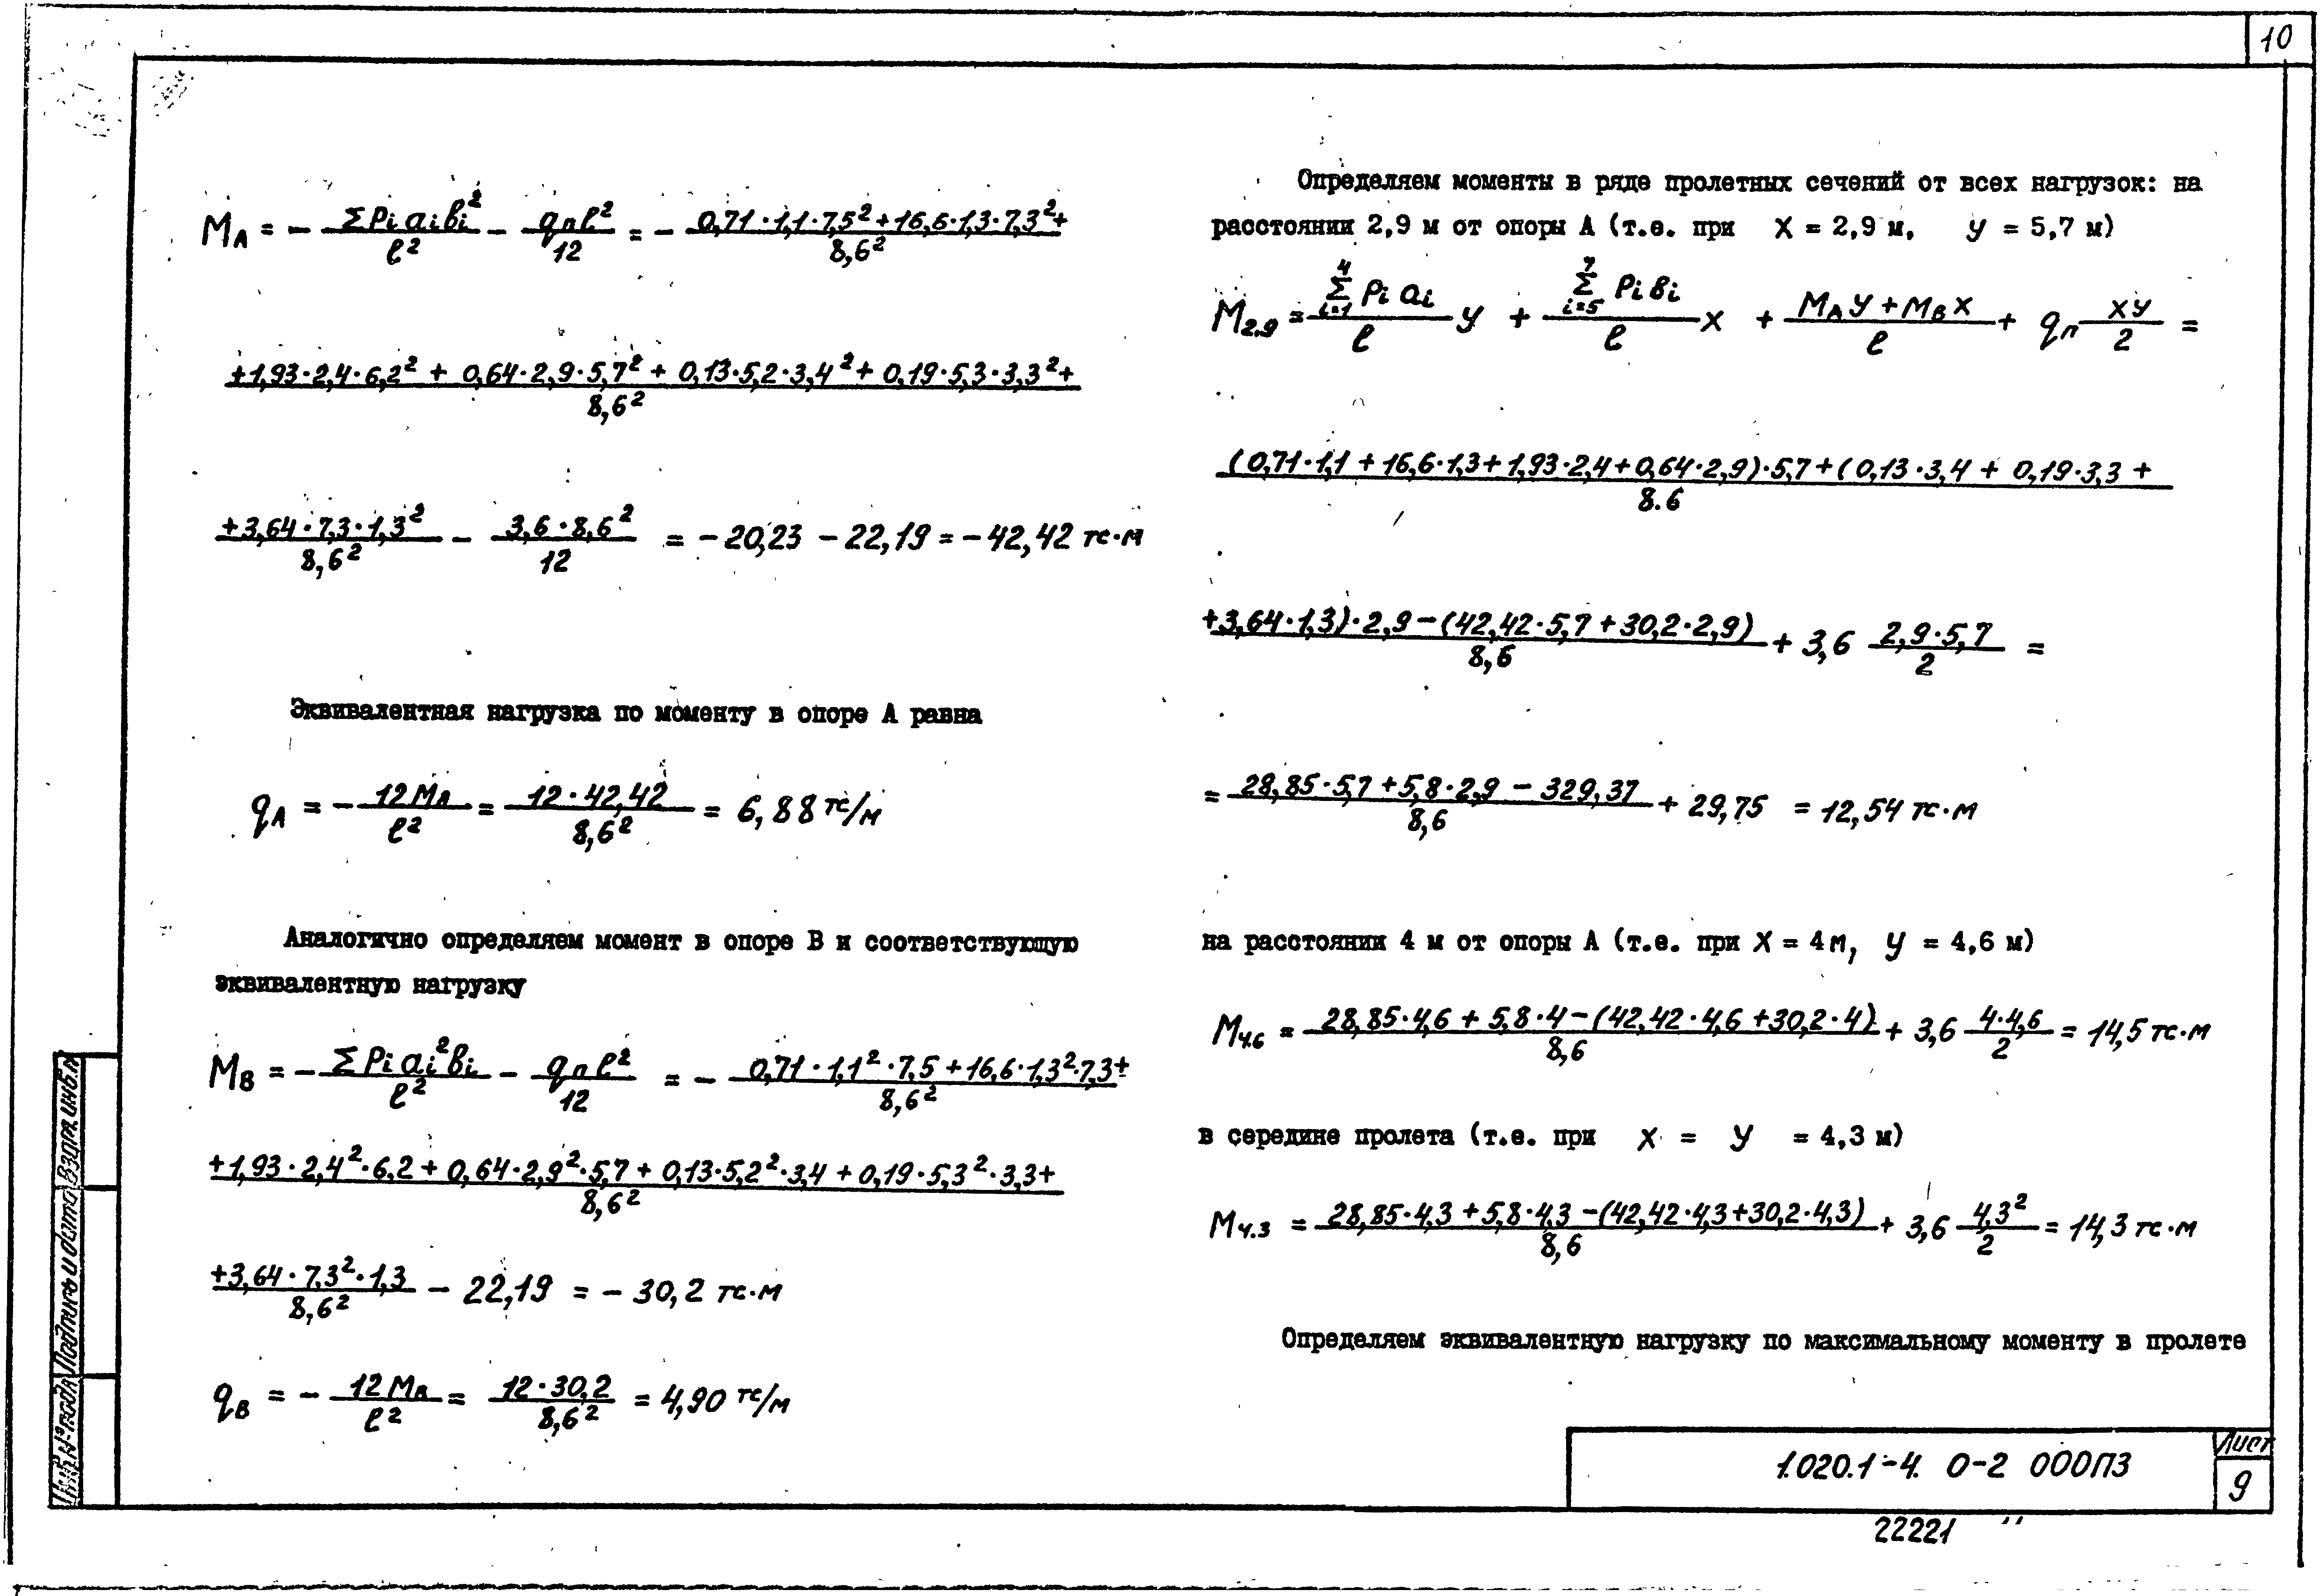 10
M_A = − ΣPi ai bi² / ℓ² − qп ℓ² / 12 = − 0,71·1,1·7,5² + 16,6·1,3·7,3² + / 8,6²
+1,93·2,4·6,2² + 0,64·2,9·5,7² + 0,13·5,2·3,4² + 0,19·5,3·3,3² + / 8,6²
+3,64·7,3·1,3² / 8,6² − 3,6·8,6² / 12 = −20,23 − 22,19 = −42,42 тс·м
Эквивалентная нагрузка по моменту в опоре А равна
q_A = − 12 M_A / ℓ² = 12·42,42 / 8,6² = 6,88 тс/м
Аналогично определяем момент в опоре В и соответствующую
эквивалентную нагрузку
M_B = − ΣPi ai² bi / ℓ² − qп ℓ² / 12 = − 0,71·1,1²·7,5 + 16,6·1,3²·7,3 + / 8,6²
+1,93·2,4²·6,2 + 0,64·2,9²·5,7 + 0,13·5,2²·3,4 + 0,19·5,3²·3,3 + / 8,6²
+3,64·7,3²·1,3 / 8,6² − 22,19 = −30,2 тс·м
q_B = − 12 M_B / ℓ² = 12·30,2 / 8,6² = 4,90 тс/м
Определяем моменты в ряде пролетных сечений от всех нагрузок: на
расстоянии 2,9 м от опоры А (т.е. при x = 2,9 м, y = 5,7 м)
M_2.9 = Σ(i=1, 4) Pi ai / ℓ y + Σ(i=5, 7) Pi bi / ℓ x + M_A y + M_B x / ℓ + qп xy / 2 =
(0,71·1,1 + 16,6·1,3 + 1,93·2,4 + 0,64·2,9)·5,7 + (0,13·3,4 + 0,19·3,3 + / 8.6
+3,64·1,3)·2,9 − (42,42·5,7 + 30,2·2,9) / 8,6 + 3,6 2,9·5,7 / 2 =
= 28,85·5,7 + 5,8·2,9 − 329,37 / 8,6 + 29,75 = 12,54 тс·м
на расстоянии 4 м от опоры А (т.е. при x = 4м, y = 4,6 м)
M_4.6 = 28,85·4,6 + 5,8·4 − (42,42·4,6 + 30,2·4) / 8,6 + 3,6 4·4,6 / 2 = 14,5 тс·м
в середине пролета (т.е. при x = y = 4,3 м)
M_4.3 = 28,85·4,3 + 5,8·4,3 − (42,42·4,3 + 30,2·4,3) / 8,6 + 3,6 4,3² / 2 = 14,3 тс·м
Определяем эквивалентную нагрузку по максимальному моменту в пролете
Инв.№ подл. Подпись и дата Взам. инв.№
1.020.1-4. 0-2 000ПЗ
Лист
9
22221